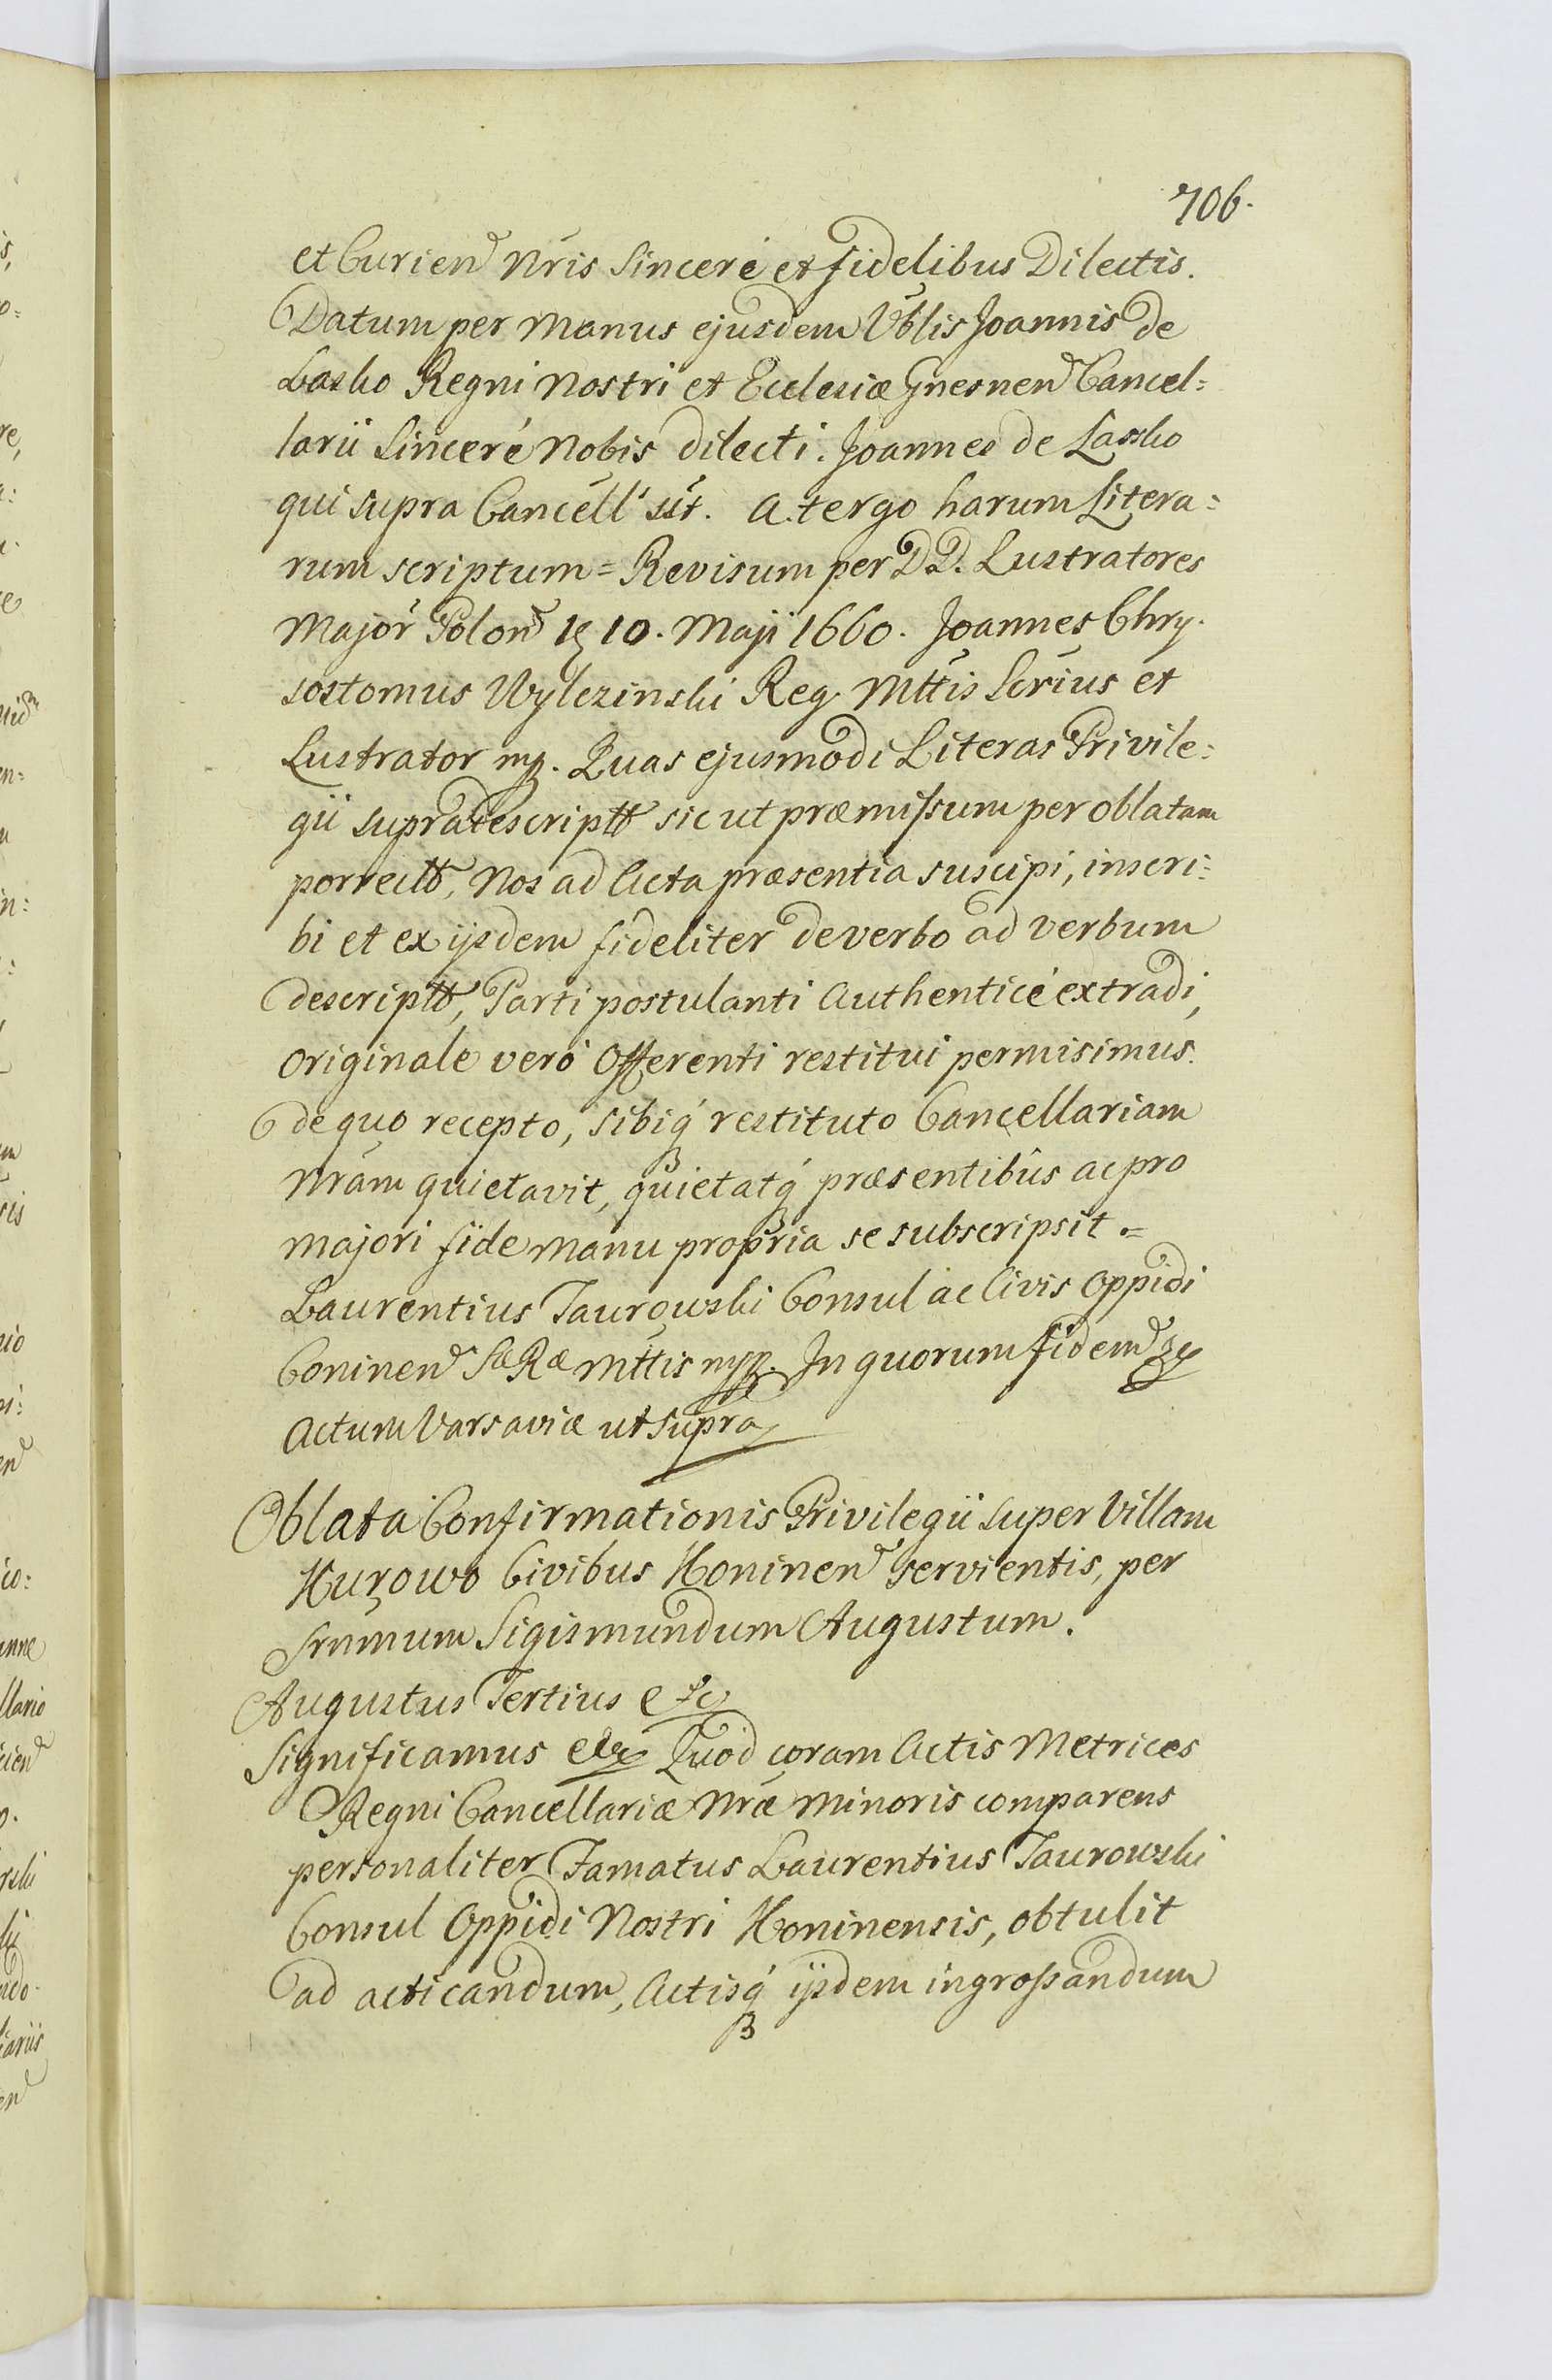 706.
et Curien Nris Sinceré et fidelibus Dilectis.
Datum per Manus ejusdem Vblis Joannis de
Lasko Regni Nostri et Ecclesiæ Gnesnen Cancel=
larii Sinceré Nobis dilecti. Joannes de Lassko
qui supra Cancell' sst. A tergo harum Litera=
rum scriptum = Revisum per DD. Lustratores
Major Polon 10. Maji 1660. Joannes Chry.
sostomus Wylezinski Reg. Mttis Scrius et
Lustrator mp. Quas ejusmodi Literas Privile=
gii supradescriptt sicut præmissum per oblatam
porrectt, Nos ad Acta præsentia suscipi, inscri=
bi et ex ijsdem fideliter de verbo ad verbum
descriptt, Parti postulanti Authenticé extradi,
Originale veró Offerenti restitui permisimus.
de quo recepto, sibiq́ restituto Cancellariam
Nram quietavit, quietatq́ præsentibus ac pro
majori fide manu propria se subscripsit =
Laurentius Taurowski Consul ac Civis Oppidi
Coninen Sæ Ræ Mttis mpp. In quorum fidem
Actum Varsaviæ ut supra
Oblata Confirmationis Privilegii super Villam
Kurowo Civibus Koninen servientis, per
Srnmum Sigismundum Augustum.
Augustus Tertius etc
Significamus etc Quod coram Actis Metrices
Regni Cancellariæ Nræ Minoris comparens
personaliter Famatus Laurentius Taurowski
Consul Oppidi Nostri Koninensis, obtulit
ad acticandum, Actisq́ ijsdem ingrossandum